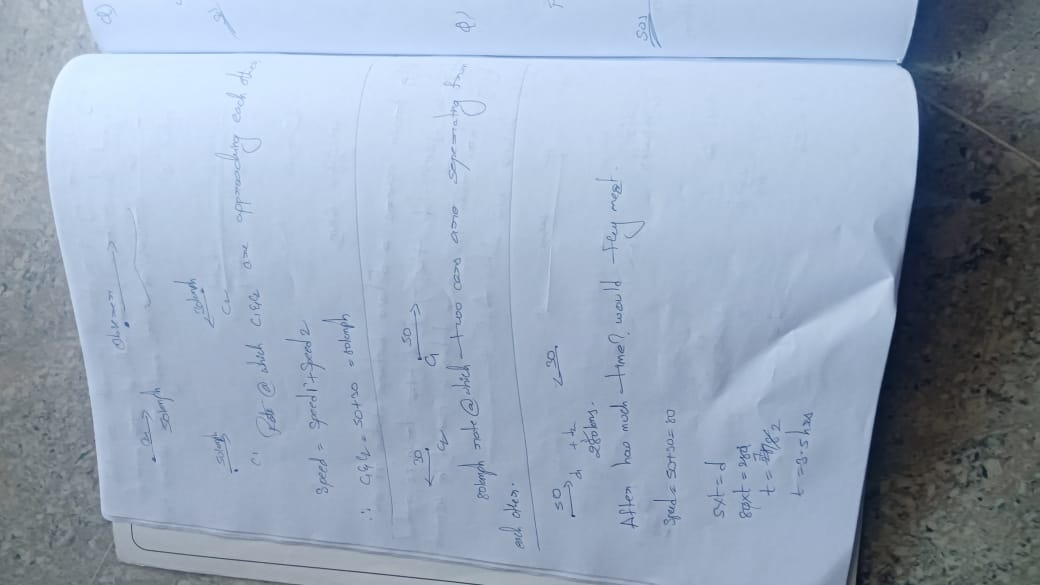 Observer
50kmph
50kmph
30kmph
C1
C2
Rate @ which C1&C2 are approaching each other
Speed = Speed 1 + Speed 2
∴ C1C2 = 50+30 = 80kmph
30
50
C2
C1
80kmph rate @ which two cars are seperating from
each other.
50
30
280kms.
After how much time? would they meet.
Speed = 50+30 = 80
S×t = d
80×t = 280
t = 3.5hrs
Q)
Sol